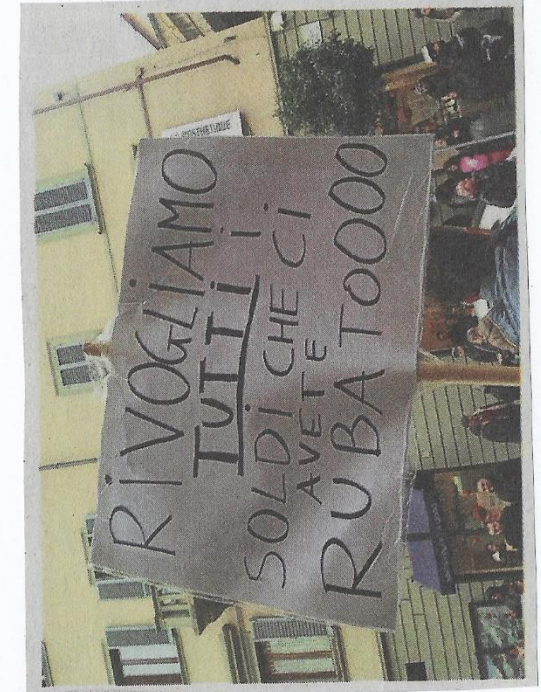 RIVOGLIAMO
TUTTI i
SOLDI CHE CI
AVETE
RUBATOOOO